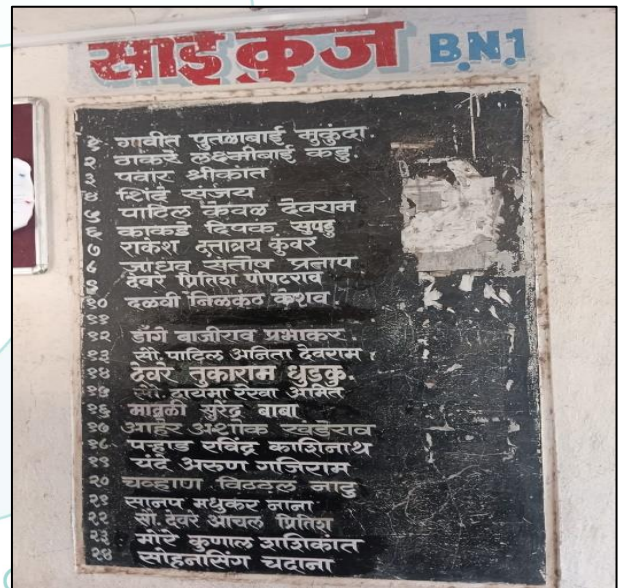 साई कुज B.N.1
१ गावीत पुतळाबाई मुकुंदा.
२ ठाकरे लक्ष्मीबाई कडु.
३ पवार श्रीकांत
४ शिंदे संजय
५ पाटिल केवळ देवराम
६ काकडे दिपक सुपडु
७ राकेश दत्तात्रय कुंवर
८ जाधव संतोष प्रताप
९ देवरे प्रितिश पोपटराव
१० दळवी निळकंठ केशव
११
१२ डोंगे बाजीराव प्रभाकर.
१३ सौ. पाटिल अनिता देवराम
१४ देवरे तुकाराम धुडकु.
१५ सौ. दायमा रेखा अमित
१६ मावळी सुरेंद्र बाबा
१७ आहेर अशोक खंडेराव
१८ पऱ्हाड रविंद्र काशिनाथ
१९ यंदे अरुण गजिराम
२० चव्हाण विठठल नाटु
२१ सानप मधुकर नाना
२२ सौ. देवरे आचल प्रितिश
२३ मोरे कुणाल शशिकांत
२४ सोहनसिंग चदाना